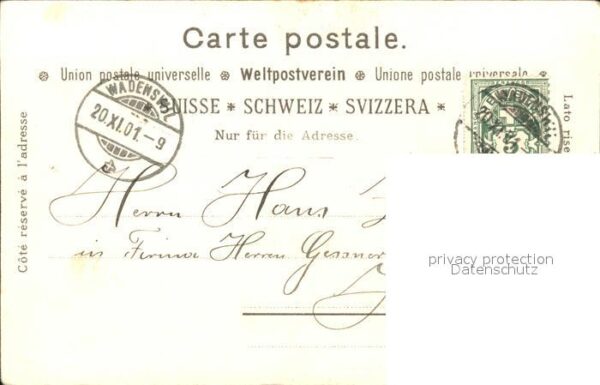 Carte postale.
Union postale universelle ⊛ Weltpostverein ⊛ Unione postale universale
SUISSE * SCHWEIZ * SVIZZERA *
Nur für die Adresse.
Côté réservé à l'adresse
Lato rise
WÄDENSWIL
20.XI.01.-9
5
Herrn Hans
in Firma Herren Gessner
privacy protection
Datenschutz